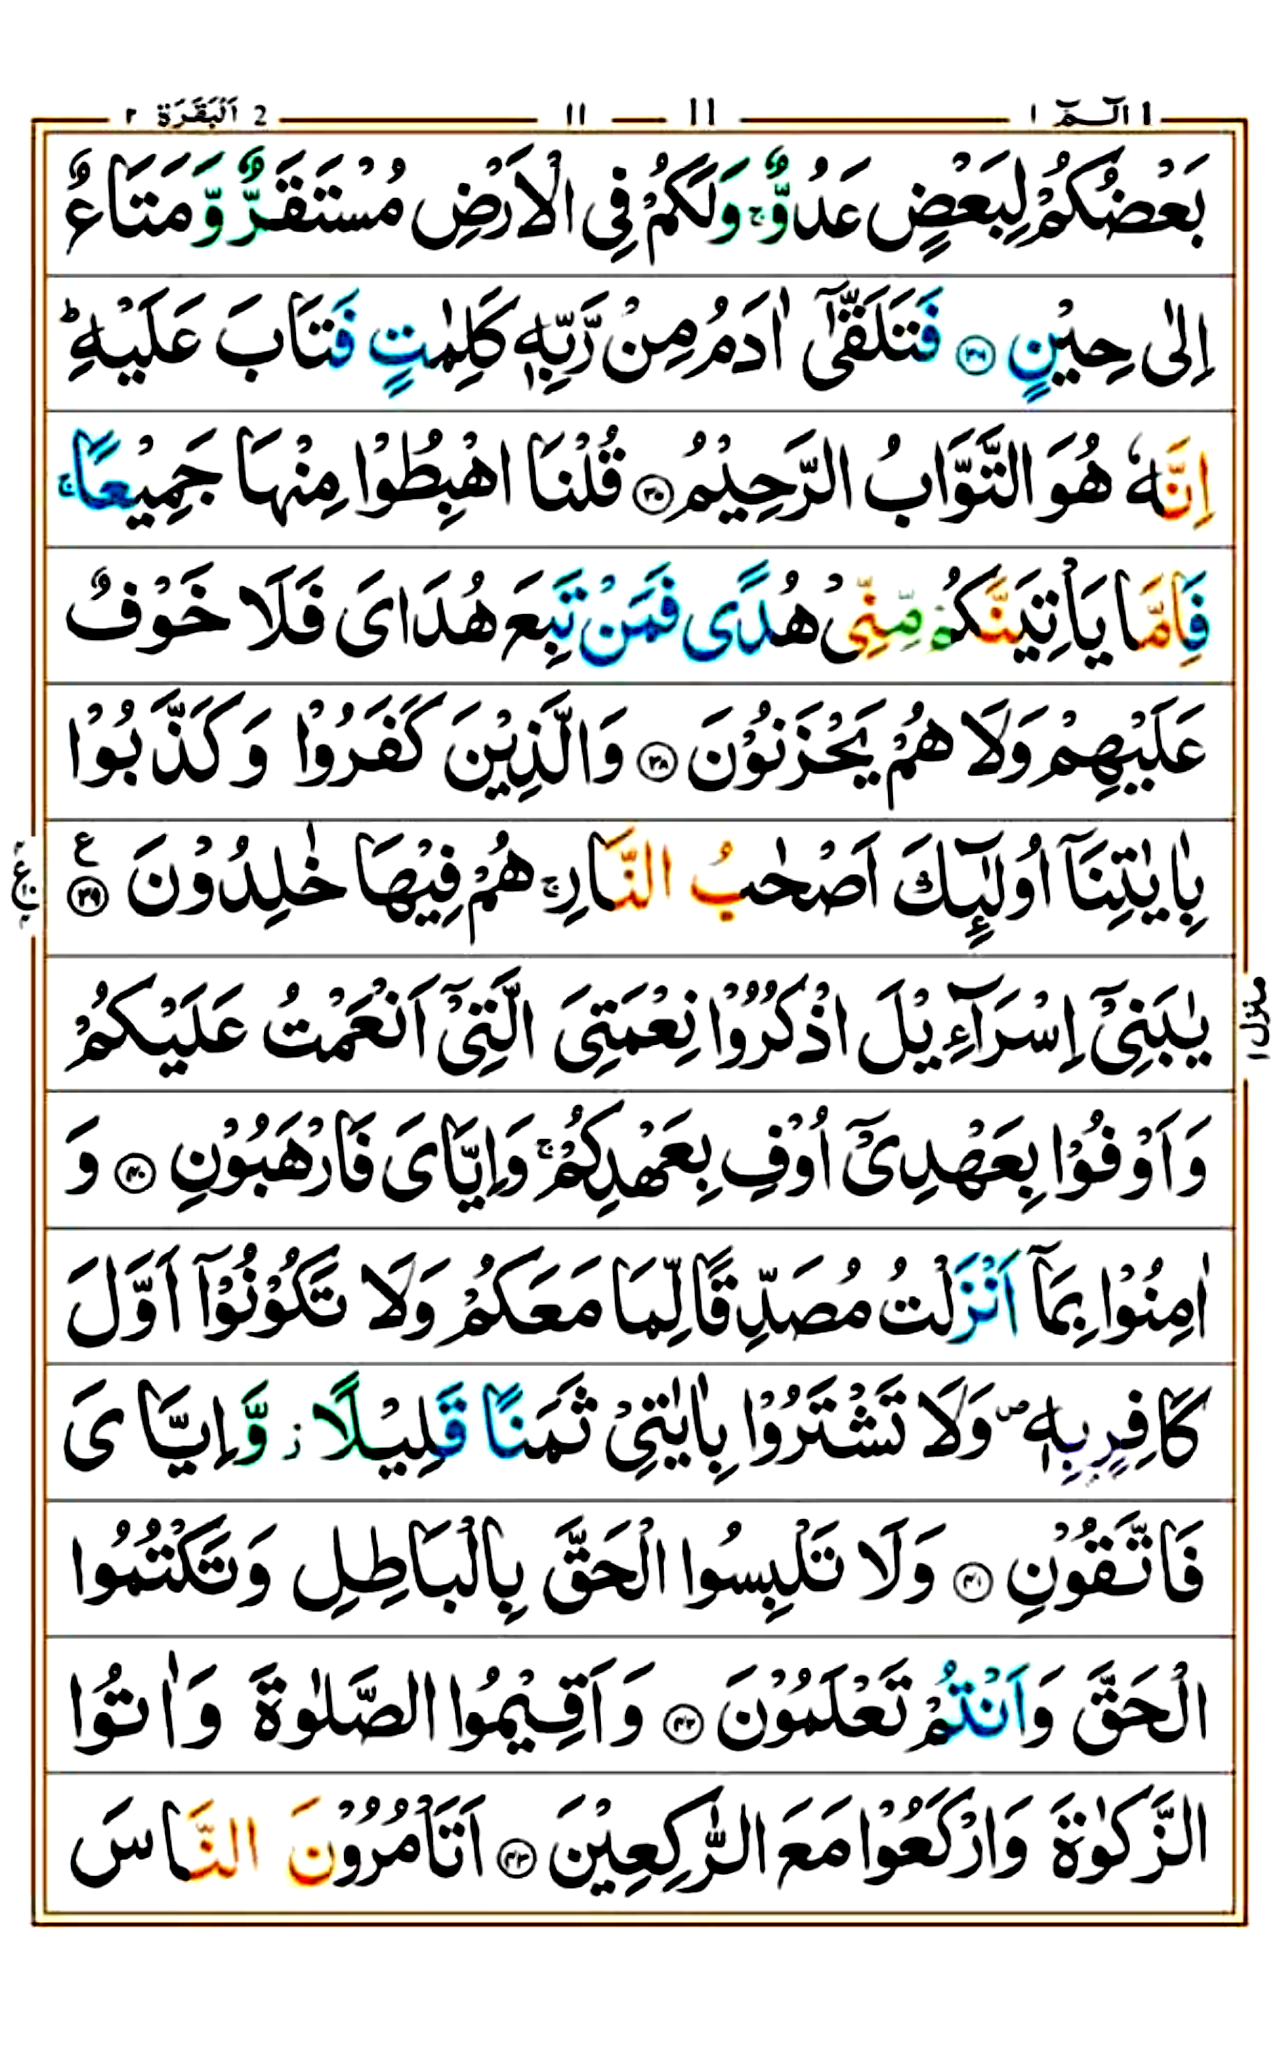 1 الٓــمّٓ ۱ 11 ۱۱ 2 اَلْبَقَرَة ۲
بَعْضُكُمْ لِبَعْضٍ عَدُوٌّ ۚ وَلَكُمْ فِى الْاَرْضِ مُسْتَقَرٌّ وَّمَتَاعٌ
اِلٰى حِيْنٍ ۳۶ فَتَلَقّٰٓى اٰدَمُ مِنْ رَّبِّهٖ كَلِمٰتٍ فَتَابَ عَلَيْهِ ؕ
اِنَّهٗ هُوَ التَّوَّابُ الرَّحِيْمُ ۳۷ قُلْنَا اهْبِطُوْا مِنْهَا جَمِيْعًا ۚ
فَاِمَّا يَاْتِيَنَّكُمْ مِّنِّىْ هُدًى فَمَنْ تَبِعَ هُدَاىَ فَلَا خَوْفٌ
عَلَيْهِمْ وَلَا هُمْ يَحْزَنُوْنَ ۳۸ وَالَّذِيْنَ كَفَرُوْا وَكَذَّبُوْا
بِاٰيٰتِنَآ اُولٰٓئِكَ اَصْحٰبُ النَّارِ ۚ هُمْ فِيْهَا خٰلِدُوْنَ ۳۹ ع
يٰبَنِىْٓ اِسْرَآءِيْلَ اذْكُرُوْا نِعْمَتِىَ الَّتِىْٓ اَنْعَمْتُ عَلَيْكُمْ
وَاَوْفُوْا بِعَهْدِىْٓ اُوْفِ بِعَهْدِكُمْ ۚ وَاِيَّاىَ فَارْهَبُوْنِ ۴۰ وَ
اٰمِنُوْا بِمَآ اَنْزَلْتُ مُصَدِّقًا لِّمَا مَعَكُمْ وَلَا تَكُوْنُوْٓا اَوَّلَ
كَافِرٍۭ بِهٖ ۖ وَلَا تَشْتَرُوْا بِاٰيٰتِىْ ثَمَنًا قَلِيْلًا ز وَّاِيَّاىَ
فَاتَّقُوْنِ ۴۱ وَلَا تَلْبِسُوا الْحَقَّ بِالْبَاطِلِ وَتَكْتُمُوا
الْحَقَّ وَاَنْتُمْ تَعْلَمُوْنَ ۴۲ وَاَقِيْمُوا الصَّلٰوةَ وَاٰتُوا
الزَّكٰوةَ وَارْكَعُوْا مَعَ الرّٰكِعِيْنَ ۴۳ اَتَاْمُرُوْنَ النَّاسَ
منزل ۱